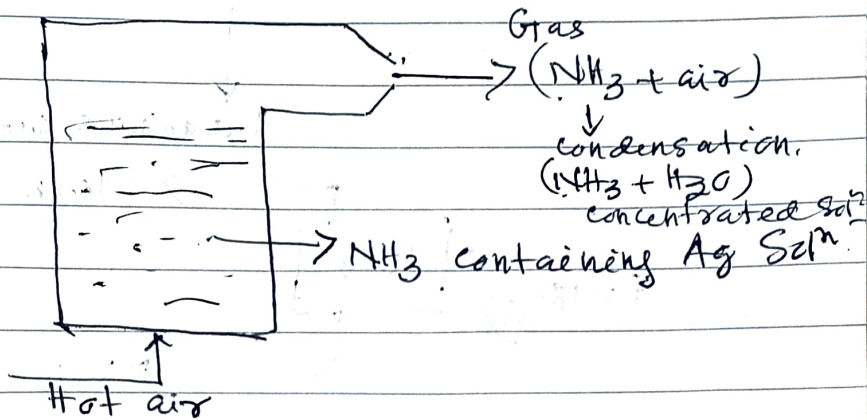 Gas
(NH3 + air)
↓
condensation.
(NH3 + H2O)
concentrated Solⁿ
NH3 containing Ag Solⁿ.
Hot air